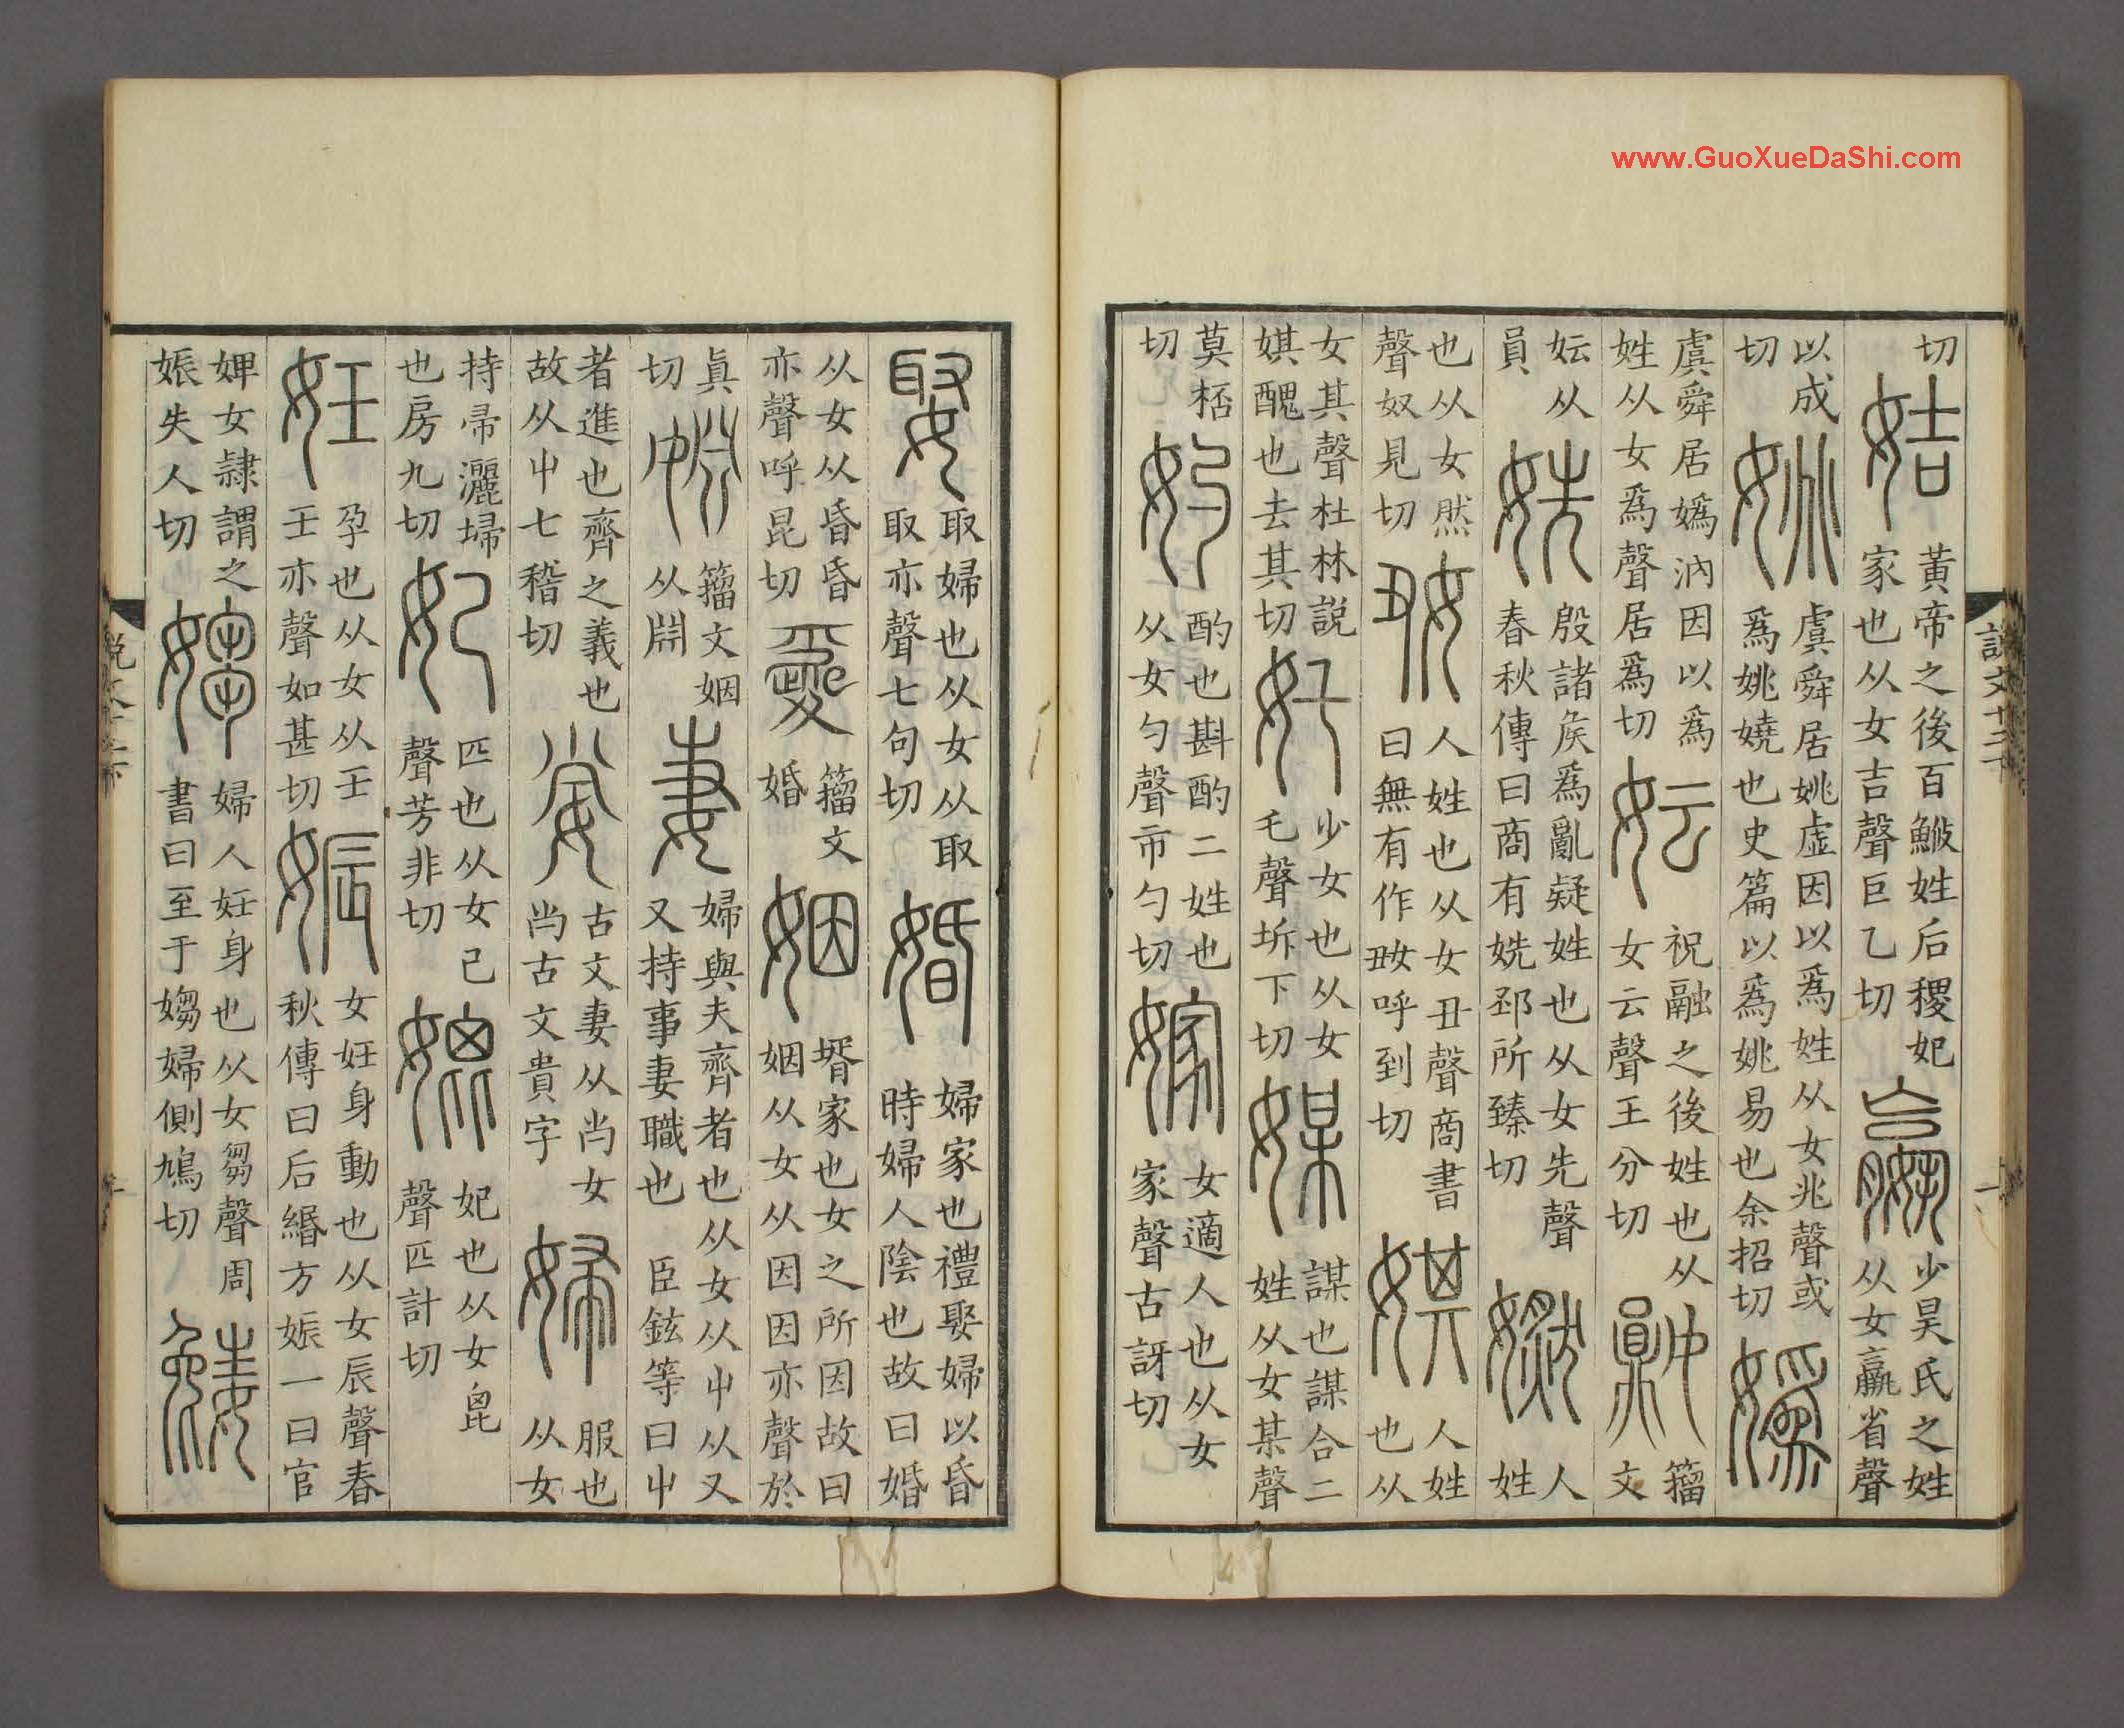 說文十二下
一
切姞黃帝之後百鮻姓后稷妃家也从女吉聲巨乙切嬴少昊氏之姓从女𣎆省聲
以成切姚虞舜居姚虛因以爲姓从女兆聲或爲姚嬈也史篇以爲姚易也余招切嬀
虞舜居嬀汭因以爲姓从女爲聲居爲切妘祝融之後姓也从女云聲王分切籒文
妘从員姺殷諸矦爲亂疑姓也从女先聲春秋傳曰商有姺邳所臻切嬿人姓
也从女然聲奴見切㚼人姓也从女丑聲商書曰無有作㚼呼到切娸人姓也从
女其聲杜林説娸醜也去其切奼少女也从女乇聲坼下切媒謀也謀合二姓从女某聲
莫桮切妁酌也斟酌二姓也从女勺聲市勺切嫁女適人也从女家聲古訝切
娶取婦也从女从取取亦聲七句切婚婦家也禮娶婦以昏時婦人陰也故曰婚
从女从昏昏亦聲呼昆切籒文婚姻壻家也女之所因故曰姻从女从因因亦聲於
眞切婣籒文姻从𣶒妻婦與夫齊者也从女从屮从又又持事妻職也臣鉉等曰屮
者進也齊之義也故从屮七稽切古文妻从𡭗女𡭗古文貴字婦服也从女
持帚灑埽也房九切妃匹也从女己聲芳非切媲妃也从女𣬉聲匹計切
妊孕也从女从壬壬亦聲如甚切娠女妊身動也从女辰聲春秋傳曰后緡方娠一曰官
婢女隷謂之娠失人切媰婦人妊身也从女芻聲周書曰至于媰婦側鳩切㝃